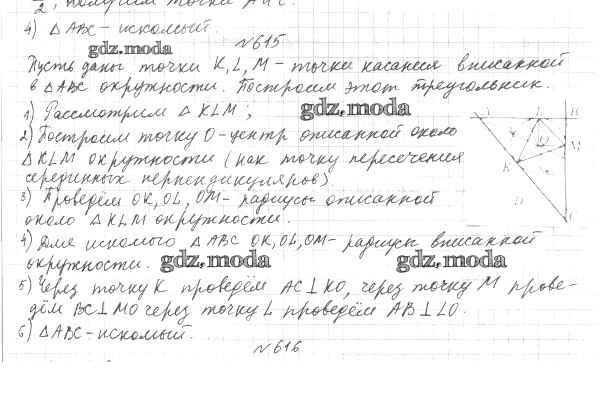 получим точки
4) △ABC - искомый.
№615
gdz.moda
Пусть даны точки K, L, M - точки касания вписанной
в △ABC окружности. Построим этот треугольник.
1) Рассмотрим △KLM;
gdz.moda
2) Построим точку O - центр описанной около
△KLM окружности (как точку пересечения
серединных перпендикуляров)
3) Проведём OK, OL, OM - радиусы описанной
около △KLM окружности.
4) Для искомого △ABC OK, OL, OM - радиусы вписанной
окружности.
gdz.moda
gdz.moda
5) Через точку K проведём AC⊥KO, через точку M прове-
дём BC⊥MO через точку L проведём AB⊥LO.
6) △ABC - искомый.
№616